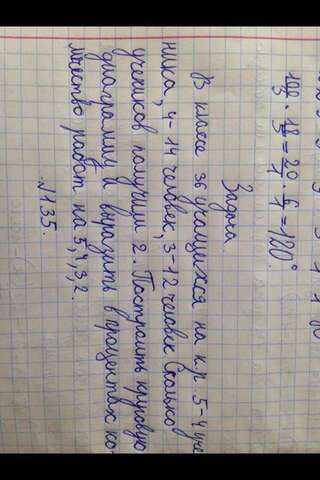 100/5 · 18/3 = 20/1 · 6/1 = 120°
Задача.
В классе 36 учащихся на к.р. 5-4 уче
ника, 4-14 человек, 3-12 человек. Сколько
учеников получили 2. Построить круговую
диаграмму и выразить в процентах ко-
личество работ на 5, 4, 3, 2.
№135.